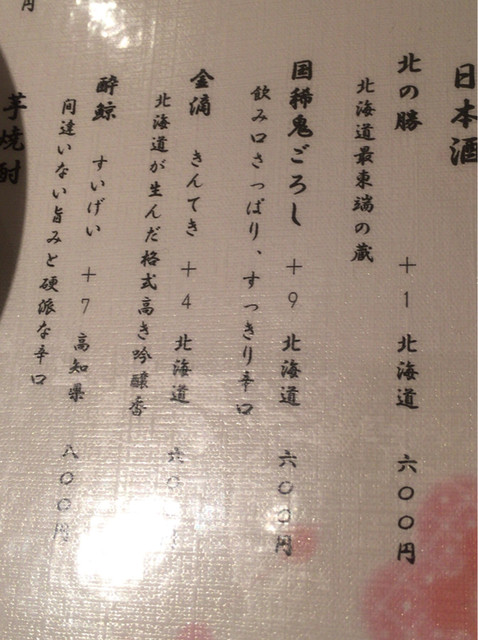 日本酒
北の勝 +1 北海道 六〇〇円
北海道最東端の蔵
国稀鬼ごろし +9 北海道 六〇〇円
飲み口さっぱり、すっきり辛口
金滴 きんてき +4 北海道
北海道が生んだ格式高き吟醸香
酔鯨 すいげい +7 高知県 八〇〇円
間違いない旨みと硬派な辛口
芋焼酎
円